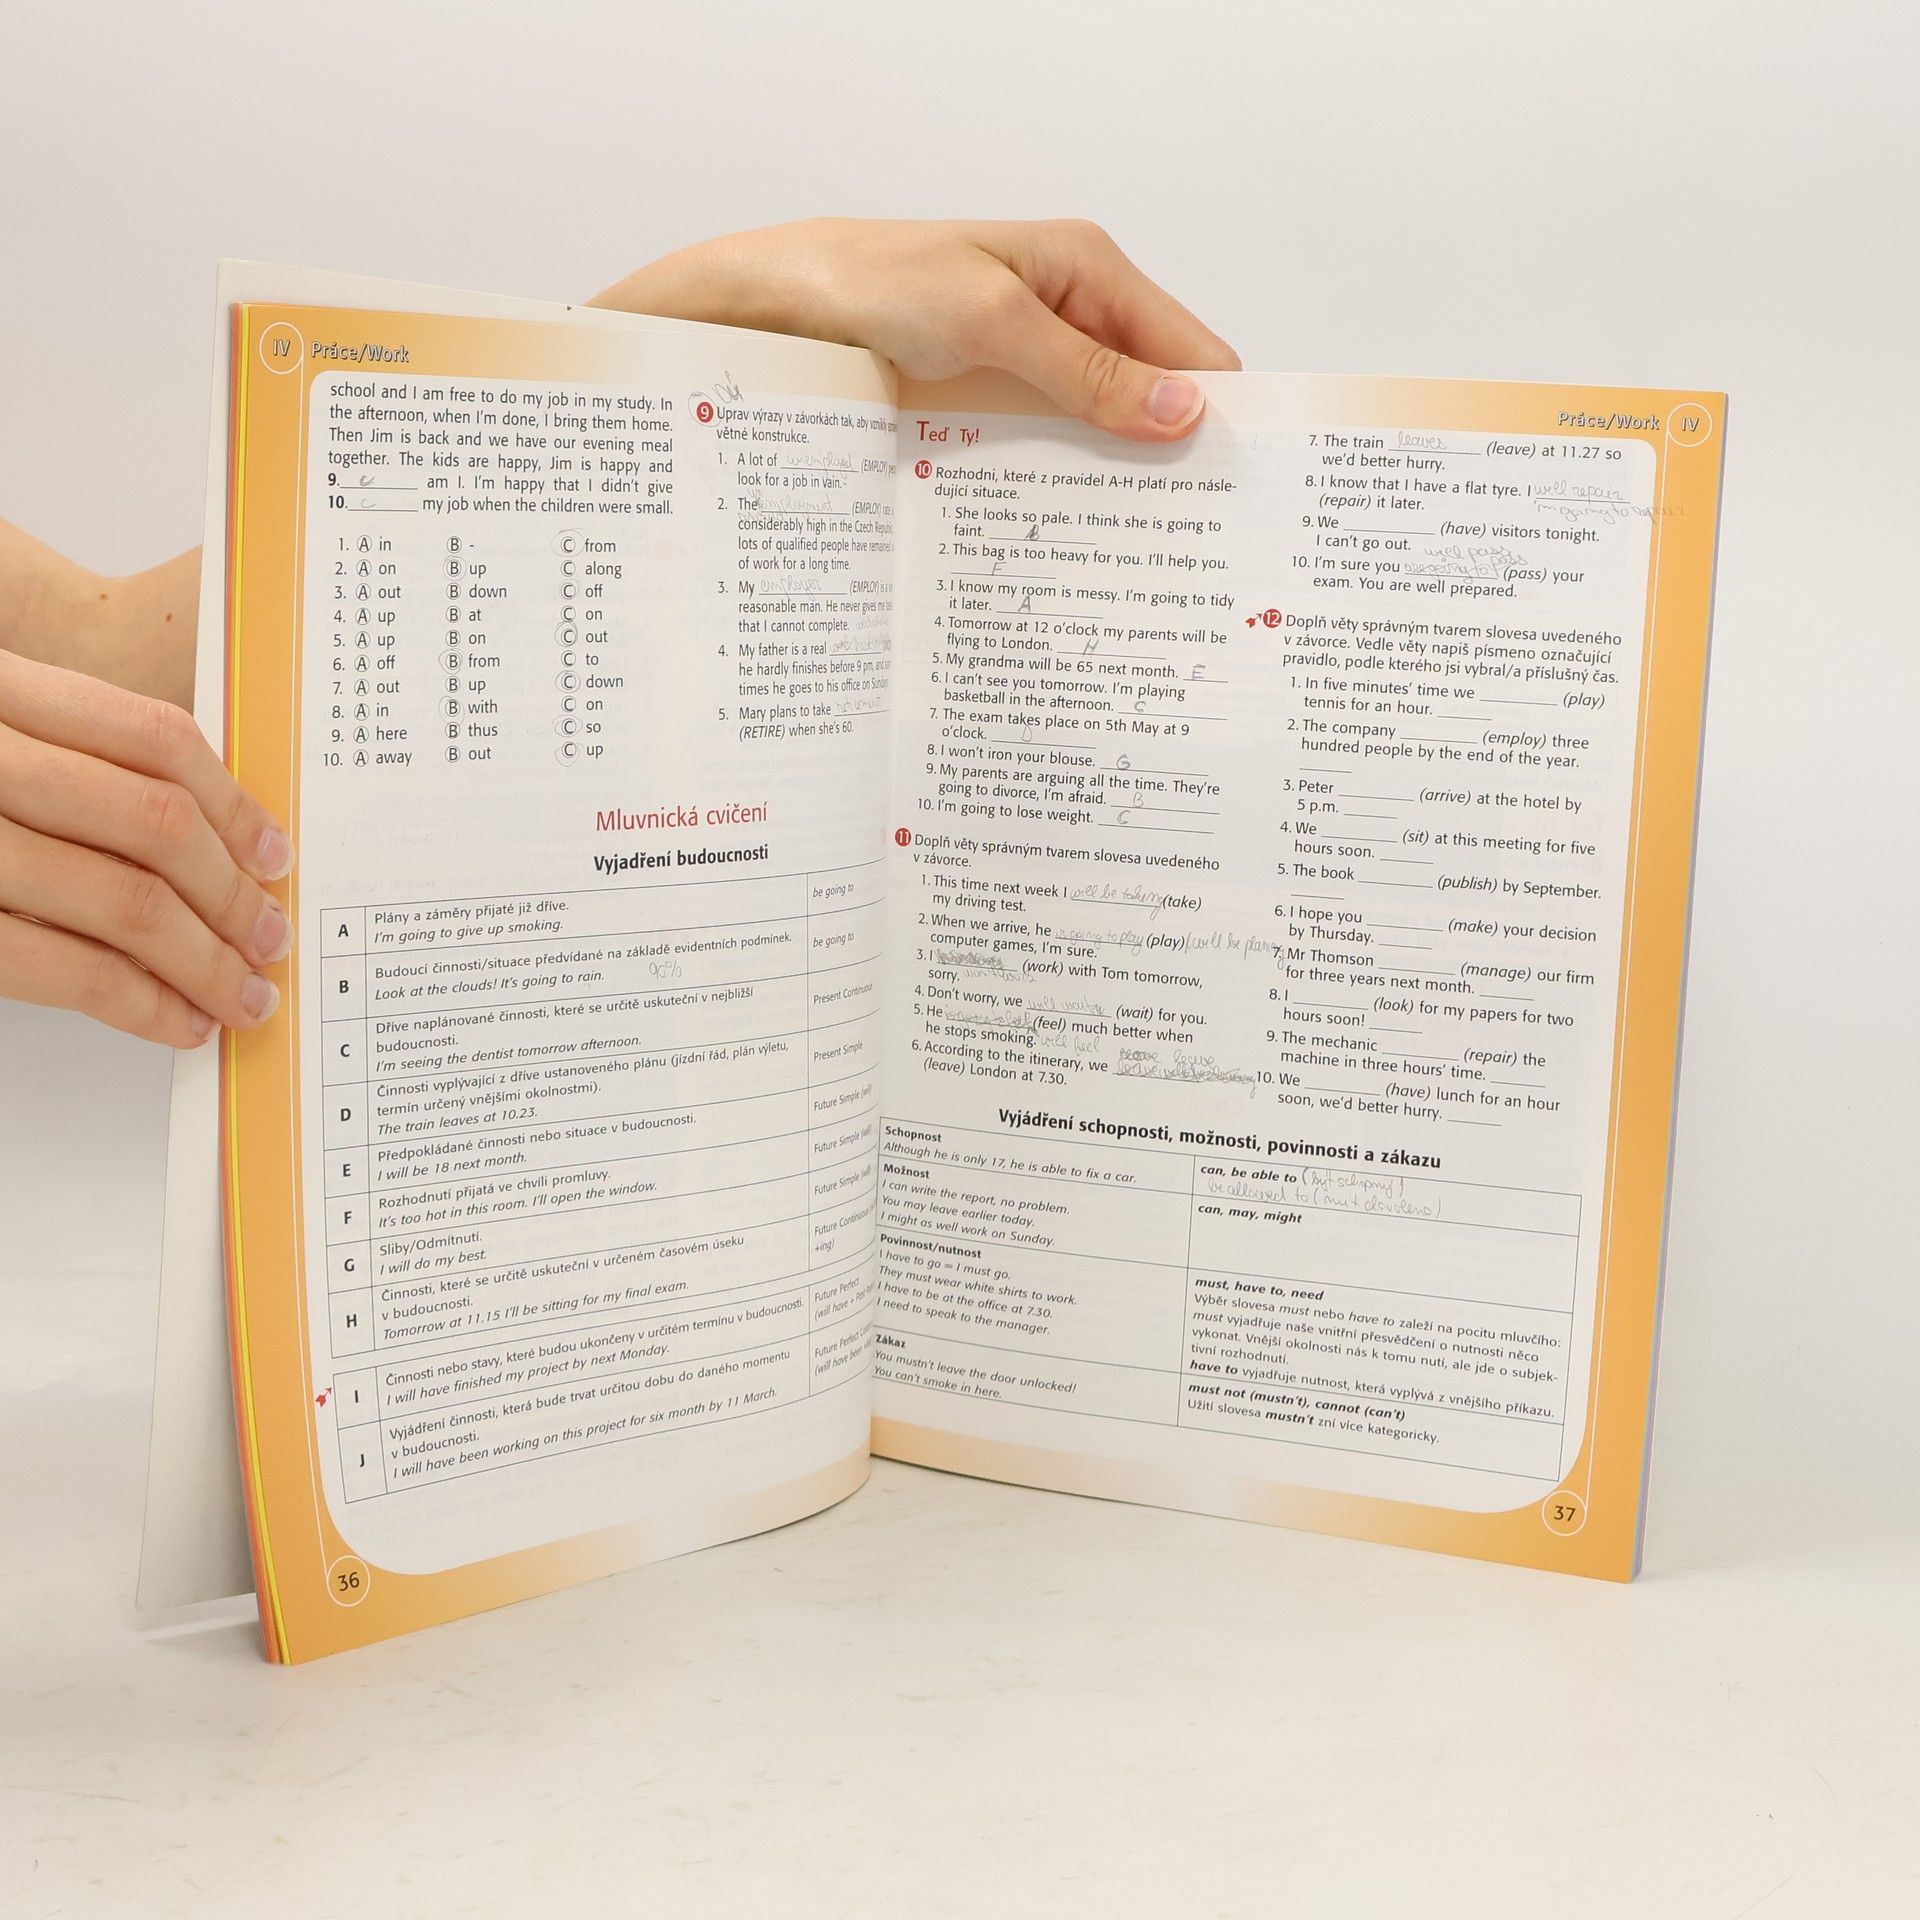 IV Práce/Work
school and I am free to do my job in my study. In
the afternoon, when I'm done, I bring them home.
Then Jim is back and we have our evening meal
together. The kids are happy, Jim is happy and
9. c am I. I'm happy that I didn't give
10. c my job when the children were small.
1. A in B - C from
2. A on B up C along
3. A out B down C off
4. A up B at C on
5. A up B on C out
6. A off B from C to
7. A out B up C down
8. A in B with C on
9. A here B thus C so
10. A away B out C up
9 Uprav výrazy v závorkách tak, aby vznikly
větné konstrukce.
1. A lot of unemployed (EMPLOY)
look for a job in vain.
2. The unemployment (EMPLOY) rate
considerably high in the Czech
lots of qualified people have remained
of work for a long time.
3. My employer (EMPLOY) is a
reasonable man. He never gives me
that I cannot complete.
4. My father is a real
he hardly finishes before 9 pm, and
times he goes to his office on Sunday.
5. Mary plans to take retirement
(RETIRE) when she's 60.
Mluvnická cvičení
Vyjadření budoucnosti
A Plány a záměry přijaté již dříve. be going to
I'm going to give up smoking.
B Budoucí činnosti/situace předvídané na základě evidentních podmínek. be going to
Look at the clouds! It's going to rain. 90%
C Dříve naplánované činnosti, které se určitě uskuteční v nejbližší Present Continuous
budoucnosti.
I'm seeing the dentist tomorrow afternoon.
D Činnosti vyplývající z dříve ustanoveného plánu (jízdní řád, plán výletu, Present Simple
termín určený vnějšími okolnostmi).
The train leaves at 10.23.
E Předpokládané činnosti nebo situace v budoucnosti. Future Simple (will)
I will be 18 next month.
F Rozhodnutí přijatá ve chvíli promluvy. Future Simple (will)
It's too hot in this room. I'll open the window.
G Sliby/Odmítnutí. Future Simple (will)
I will do my best.
H Činnosti, které se určitě uskuteční v určeném časovém úseku Future Continuous
v budoucnosti. +ing)
Tomorrow at 11.15 I'll be sitting for my final exam.
I Činnosti nebo stavy, které budou ukončeny v určitém termínu v budoucnosti. Future Perfect
I will have finished my project by next Monday. (will have + Past
J Vyjádření činnosti, která bude trvat určitou dobu do daného momentu Future Perfect
v budoucnosti. (will have been
I will have been working on this project for six month by 11 March.
36
Práce/Work IV
Teď Ty!
10 Rozhodni, které z pravidel A-H platí pro násle-
dující situace.
1. She looks so pale. I think she is going to
faint. B
2. This bag is too heavy for you. I'll help you.
F
3. I know my room is messy. I'm going to tidy
it later. A
4. Tomorrow at 12 o'clock my parents will be
flying to London. H
5. My grandma will be 65 next month. E
6. I can't see you tomorrow. I'm playing
basketball in the afternoon. C
7. The exam takes place on 5th May at 9
o'clock. D
8. I won't iron your blouse. G
9. My parents are arguing all the time. They're
going to divorce, I'm afraid. B
10. I'm going to lose weight. C
11 Doplň věty správným tvarem slovesa uvedeného
v závorce.
1. This time next week I will be taking (take)
my driving test.
2. When we arrive, he is going to play (play) / will be playing
computer games, I'm sure.
3. I (work) with Tom tomorrow,
sorry. won't work
4. Don't worry, we will wait (wait) for you.
5. He (feel) much better when
he stops smoking. will feel
6. According to the itinerary, we leave
(leave) London at 7.30.
7. The train leaves (leave) at 11.27 so
we'd better hurry.
8. I know that I have a flat tyre. I will repair
(repair) it later. 'm going to repair
9. We (have) visitors tonight.
I can't go out. will pass
10. I'm sure you are going to pass (pass) your
exam. You are well prepared.
12 Doplň věty správným tvarem slovesa uvedeného
v závorce. Vedle věty napiš písmeno označující
pravidlo, podle kterého jsi vybral/a příslušný čas.
1. In five minutes' time we (play)
tennis for an hour.
2. The company (employ) three
hundred people by the end of the year.
3. Peter (arrive) at the hotel by
5 p.m.
4. We (sit) at this meeting for five
hours soon.
5. The book (publish) by September.
6. I hope you (make) your decision
by Thursday.
7. Mr Thomson (manage) our firm
for three years next month.
8. I (look) for my papers for two
hours soon!
9. The mechanic (repair) the
machine in three hours' time.
10. We (have) lunch for an hour
soon, we'd better hurry.
Vyjádření schopnosti, možnosti, povinnosti a zákazu
Schopnost
Although he is only 17, he is able to fix a car.
can, be able to (být schopný)
be allowed to (mít dovoleno)
Možnost
I can write the report, no problem.
You may leave earlier today.
I might as well work on Sunday.
can, may, might
Povinnost/nutnost
I have to go = I must go.
They must wear white shirts to work.
I have to be at the office at 7.30.
I need to speak to the manager.
must, have to, need
Výběr slovesa must nebo have to zaleží na pocitu mluvčího:
must vyjadřuje naše vnitřní přesvědčení o nutnosti něco
vykonat. Vnější okolnosti nás k tomu nutí, ale jde o subjek-
tivní rozhodnutí.
have to vyjadřuje nutnost, která vyplývá z vnějšího příkazu.
Zákaz
You mustn't leave the door unlocked!
You can't smoke in here.
must not (mustn't), cannot (can't)
Užití slovesa mustn't zní více kategoricky.
37